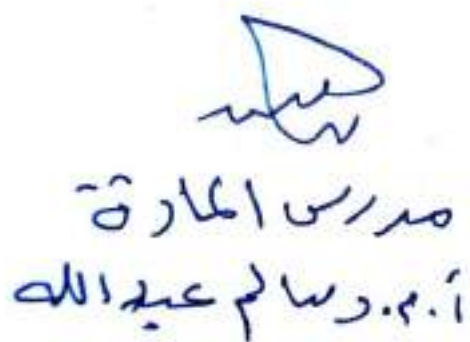 مدرس المادة
أ.م.د سالم عبدالله